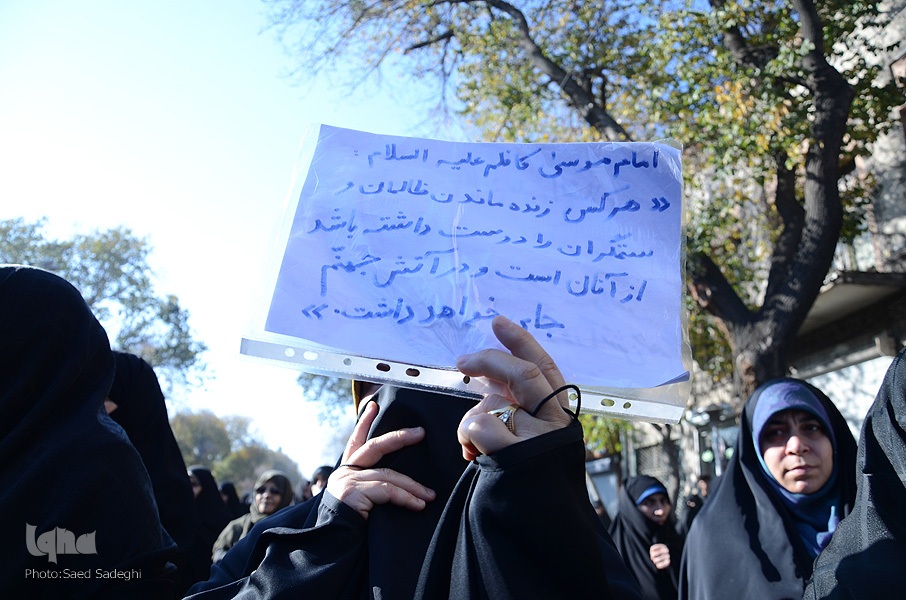 امام موسی کاظم علیه السلام :
« هرکس زنده ماندن ظالمان و
ستمگران را دوست داشته باشد
از آنان است و در آتش جهنّم
جای خواهد داشت. »
iqna
Photo:Saed Sadeghi